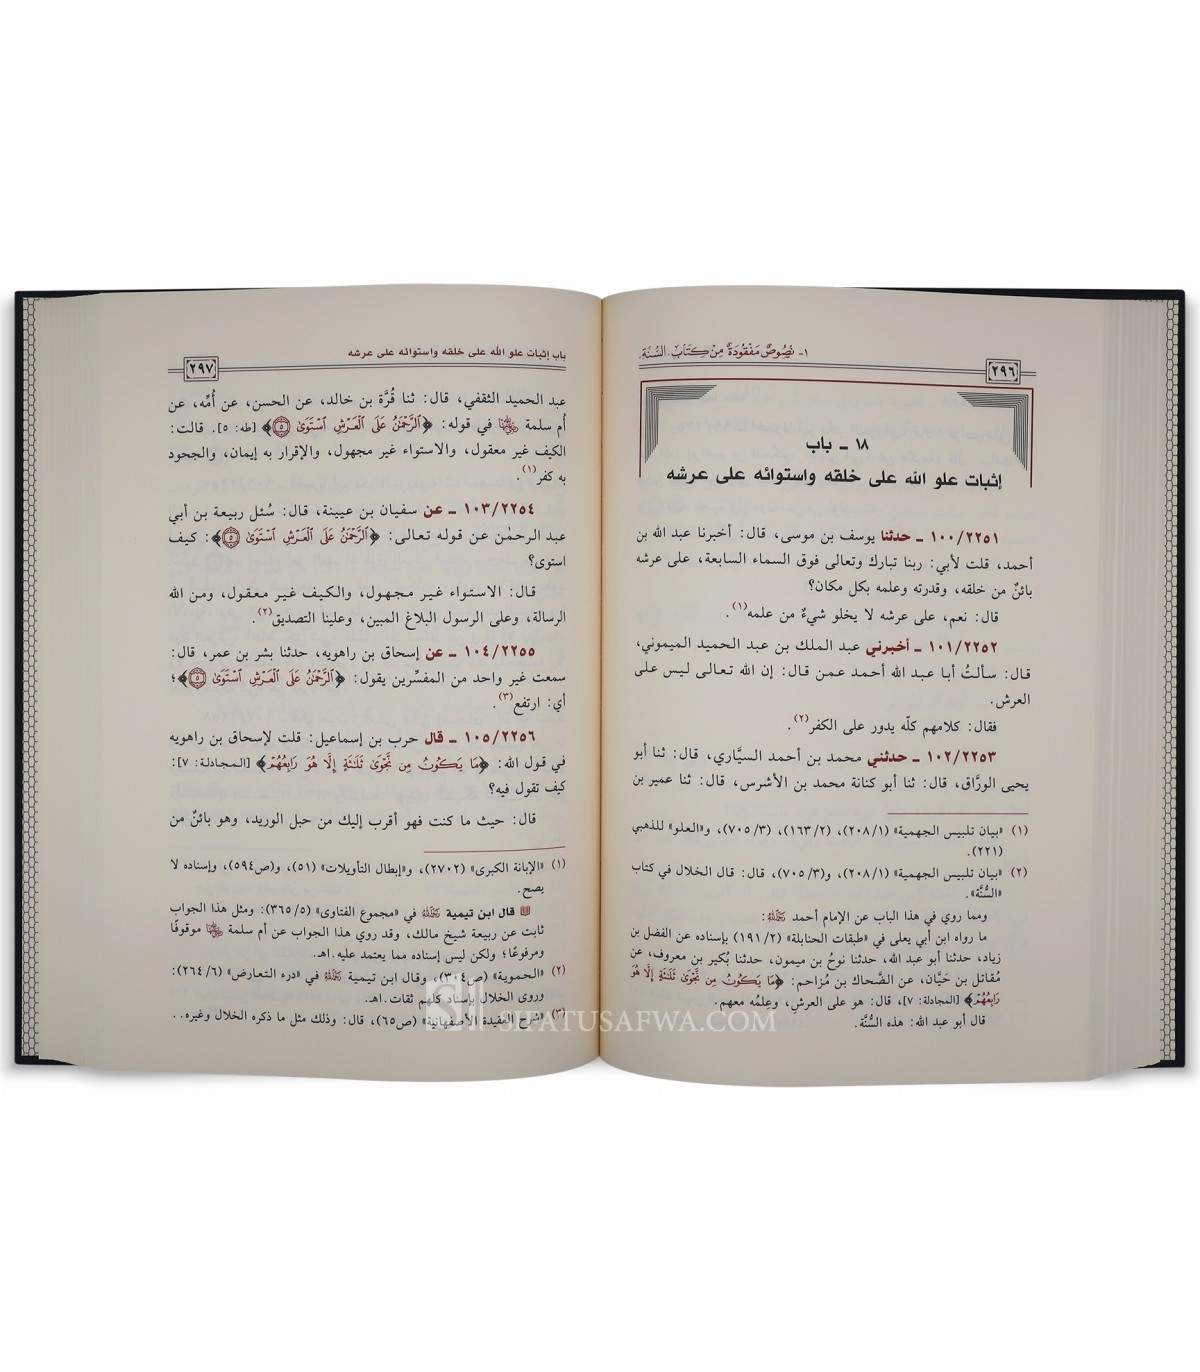 ١- نُصُوصٌ مَفْقُودَةٌ مِنْ كِتَابِ «السُّنَّة»
٢٩٦
١٨ ـ باب
إثبات علو الله على خلقه واستوائه على عرشه
١٠٠/٢٢٥١ ـ حدثنا يوسف بن موسى، قال: أخبرنا عبد الله بن
أحمد، قلت لأبي: ربنا تبارك وتعالى فوق السماء السابعة، على عرشه
بائنٌ من خلقه، وقدرته وعلمه بكل مكان؟
قال: نعم، على عرشه لا يخلو شيءٌ من علمه(١).
١٠١/٢٢٥٢ ـ أخبرني عبد الملك بن عبد الحميد الميموني،
قال: سألتُ أبا عبد الله أحمد عمن قال: إن الله تعالى ليس على
العرش.
فقال: كلامهم كلّه يدور على الكفر(٢).
١٠٢/٢٢٥٣ ـ حدثني محمد بن أحمد السيَّاري، قال: ثنا أبو
يحيى الورَّاق، قال: ثنا أبو كنانة محمد بن الأشرس، قال: ثنا عمير بن
(١) «بيان تلبيس الجهمية» (٢٠٨/١)، (١٦٣/٢)، (٧٠٥/٣)، و«العلو» للذهبي
(٢٢١).
(٢) «بيان تلبيس الجهمية» (٢٠٨/١)، و(٧٠٥/٣)، قال: قال الخلال في كتاب
«السُّنَّة».
ومما روي في هذا الباب عن الإمام أحمد رَحِمَهُ اللهُ:
ما رواه ابن أبي يعلى في «طبقات الحنابلة» (١٩١/٢) بإسناده عن الفضل بن
زياد، حدثنا أبو عبد الله، حدثنا نوحُ بن ميمون، حدثنا بُكير بن معروف، عن
مُقاتل بن حَيَّان، عن الضَّحاك بن مُزاحم: ﴿مَا يَكُونُ مِن نَّجْوَىٰ ثَلَٰثَةٍ إِلَّا هُوَ
رَابِعُهُمْ﴾ [المجادلة: ٧]، قال: هو على العرشِ، وعِلمُه معهم.
قال أبو عبد الله: هذه السُّنَّة.
باب إثبات علو الله على خلقه واستوائه على عرشه
٢٩٧
عبد الحميد الثقفي، قال: ثنا قُرَّة بن خالد، عن الحسن، عن أُمِّه، عن
أُم سلمة رضي الله عنها في قوله: ﴿ٱلرَّحْمَٰنُ عَلَى ٱلْعَرْشِ ٱسْتَوَىٰ ۝٥﴾ [طه: ٥]. قالت:
الكيف غير معقول، والاستواء غير مجهول، والإقرار به إيمان، والجحود
به كفر(١).
١٠٣/٢٢٥٤ ـ عن سفيان بن عيينة، قال: سُئل ربيعة بن أبي
عبد الرحمٰن عن قوله تعالى: ﴿ٱلرَّحْمَٰنُ عَلَى ٱلْعَرْشِ ٱسْتَوَىٰ ۝٥﴾: كيف
استوى؟
قال: الاستواء غير مجهول، والكيف غير معقول، ومن الله
الرسالة، وعلى الرسول البلاغ المبين، وعلينا التصديق(٢).
١٠٤/٢٢٥٥ ـ عن إسحاق بن راهويه، حدثنا بشر بن عمر، قال:
سمعت غير واحد من المفسِّرين يقول: ﴿ٱلرَّحْمَٰنُ عَلَى ٱلْعَرْشِ ٱسْتَوَىٰ ۝٥﴾؛
أي: ارتفع(٣).
١٠٥/٢٢٥٦ ـ قال حرب بن إسماعيل: قلت لإسحاق بن راهويه
في قول الله: ﴿مَا يَكُونُ مِن نَّجْوَىٰ ثَلَٰثَةٍ إِلَّا هُوَ رَابِعُهُمْ﴾ [المجادلة: ٧]:
كيف تقول فيه؟
قال: حيث ما كنت فهو أقرب إليك من حبل الوريد، وهو بائنٌ من
(١) «الإبانة الكبرى» (٢٧٠٢)، و«إبطال التأويلات» (٥١)، و(ص٥٩٤)، وإسناده لا
يصح.
قال ابن تيمية رَحِمَهُ اللهُ في «مجموع الفتاوى» (٣٦٥/٥): ومثل هذا الجواب
ثابت عن ربيعة شيخ مالك، وقد روي هذا الجواب عن أم سلمة رضي الله عنها موقوفًا
ومرفوعًا؛ ولكن ليس إسناده مما يعتمد عليه.اهـ.
(٢) «الحموية» (ص٣٠٤)، وقال ابن تيمية رَحِمَهُ اللهُ في «درء التعارض» (٢٦٤/٦):
وروى الخلال بإسناد كلهم ثقات.اهـ.
(٣) «شرح العقيدة الأصفهانية» (ص٦٥)، قال: وذلك مثل ما ذكره الخلال وغيره..
SIFATUSAFWA.COM